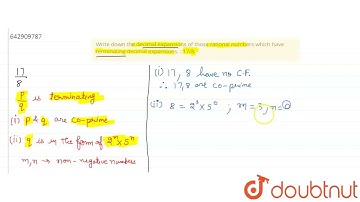 642909787
Write down the decimal expansions of those rational numbers which have
terminating decimal expansions. : 17/8
17
8
p
q
is terminating
(i) p & q are co-prime
(ii) q is in the form of 2^m x 5^n
m, n → non-negative numbers
(i) 17, 8 have no C.F.
∴ 17, 8 are co-prime
(ii) 8 = 2^3 x 5^0 ; m = 3, n = 0
doubtnut